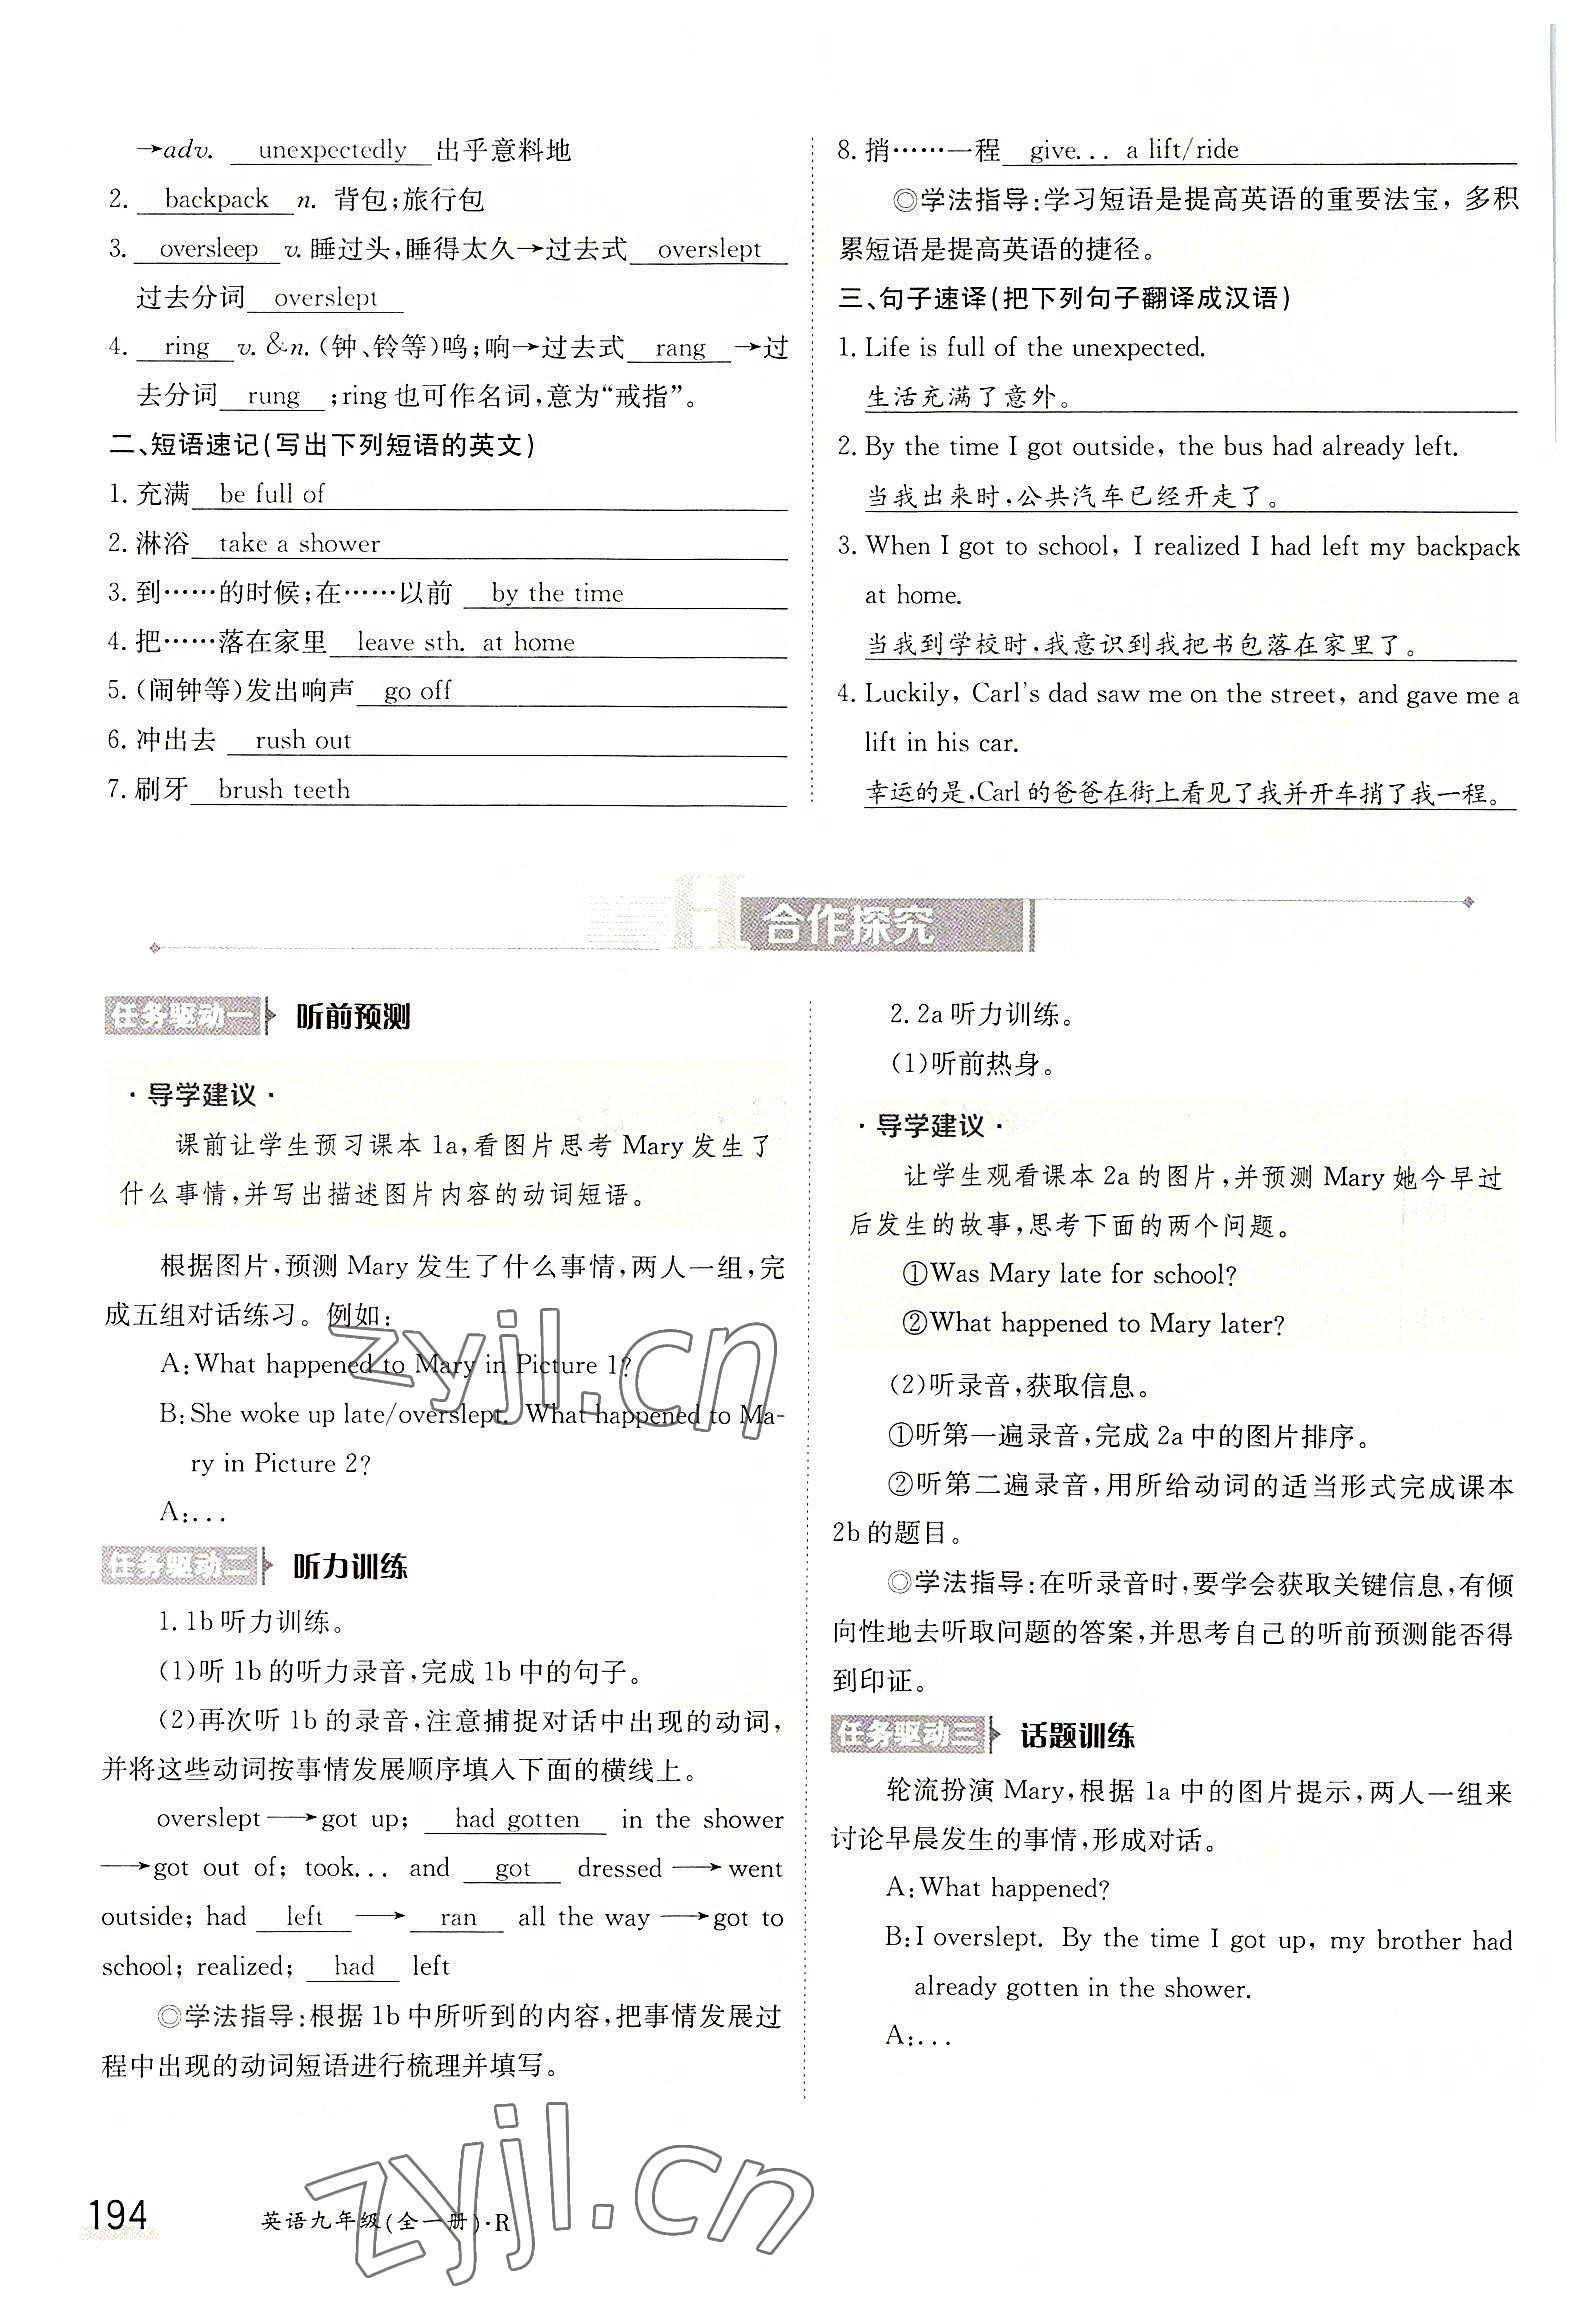 →adv. unexpectedly 出乎意料地
2. backpack n. 背包;旅行包
3. oversleep v. 睡过头,睡得太久→过去式 overslept
过去分词 overslept
4. ring v. &n. (钟、铃等)鸣;响→过去式 rang →过
去分词 rung ;ring也可作名词,意为“戒指”。
二、短语速记(写出下列短语的英文)
1. 充满 be full of
2. 淋浴 take a shower
3. 到……的时候;在……以前 by the time
4. 把……落在家里 leave sth. at home
5. (闹钟等)发出响声 go off
6. 冲出去 rush out
7. 刷牙 brush teeth
8. 捎……一程 give... a lift/ride
◎学法指导:学习短语是提高英语的重要法宝,多积
累短语是提高英语的捷径。
三、句子速译(把下列句子翻译成汉语)
1. Life is full of the unexpected.
生活充满了意外。
2. By the time I got outside, the bus had already left.
当我出来时,公共汽车已经开走了。
3. When I got to school, I realized I had left my backpack
at home.
当我到学校时,我意识到我把书包落在家里了。
4. Luckily, Carl's dad saw me on the street, and gave me a
lift in his car.
幸运的是,Carl的爸爸在街上看见了我并开车捎了我一程。
H 合作探究
任务驱动一 听前预测
·导学建议·
课前让学生预习课本1a,看图片思考Mary发生了
什么事情,并写出描述图片内容的动词短语。
根据图片,预测Mary发生了什么事情,两人一组,完
成五组对话练习。例如:
A:What happened to Mary in Picture 1?
B:She woke up late/overslept. What happened to Ma-
ry in Picture 2?
A:...
任务驱动二 听力训练
1. 1b听力训练。
(1)听1b的听力录音,完成1b中的句子。
(2)再次听1b的录音,注意捕捉对话中出现的动词,
并将这些动词按事情发展顺序填入下面的横线上。
overslept→got up; had gotten in the shower
→got out of; took... and got dressed→went
outside; had left → ran all the way→got to
school; realized; had left
◎学法指导:根据1b中所听到的内容,把事情发展过
程中出现的动词短语进行梳理并填写。
2. 2a听力训练。
(1)听前热身。
·导学建议·
让学生观看课本2a的图片,并预测Mary她今早过
后发生的故事,思考下面的两个问题。
①Was Mary late for school?
②What happened to Mary later?
(2)听录音,获取信息。
①听第一遍录音,完成2a中的图片排序。
②听第二遍录音,用所给动词的适当形式完成课本
2b的题目。
◎学法指导:在听录音时,要学会获取关键信息,有倾
向性地去听取问题的答案,并思考自己的听前预测能否得
到印证。
任务驱动三 话题训练
轮流扮演Mary,根据1a中的图片提示,两人一组来
讨论早晨发生的事情,形成对话。
A:What happened?
B:I overslept. By the time I got up, my brother had
already gotten in the shower.
A:...
zyjl.cn
zyjl.cn
194 英语九年级(全一册)·R